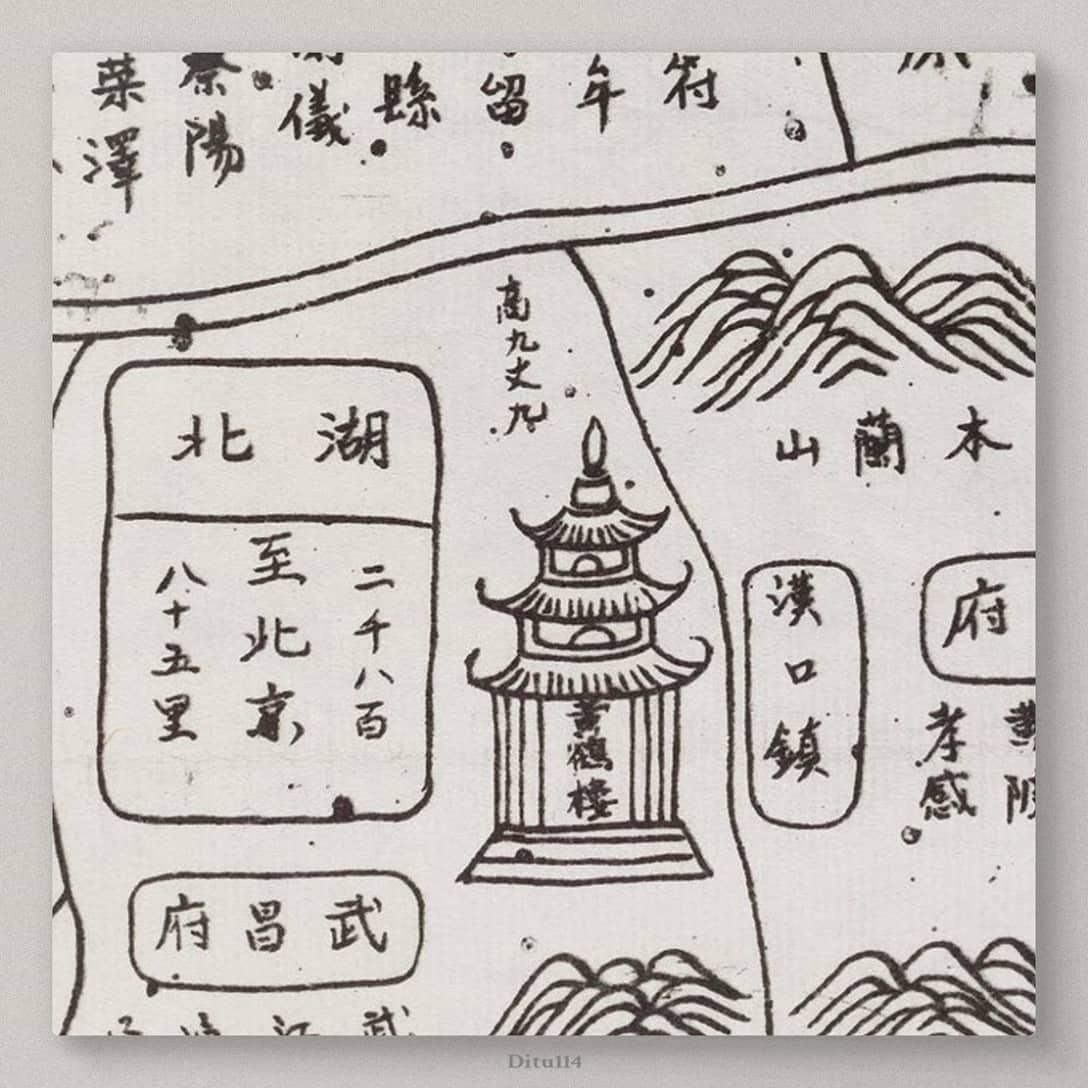 符
留
縣
儀
陽
澤
高九丈九
本蘭山
湖北
二千八百
至北京
八十五里
黃鶴樓
漢口鎮
府
孝感
武昌府
Ditu114